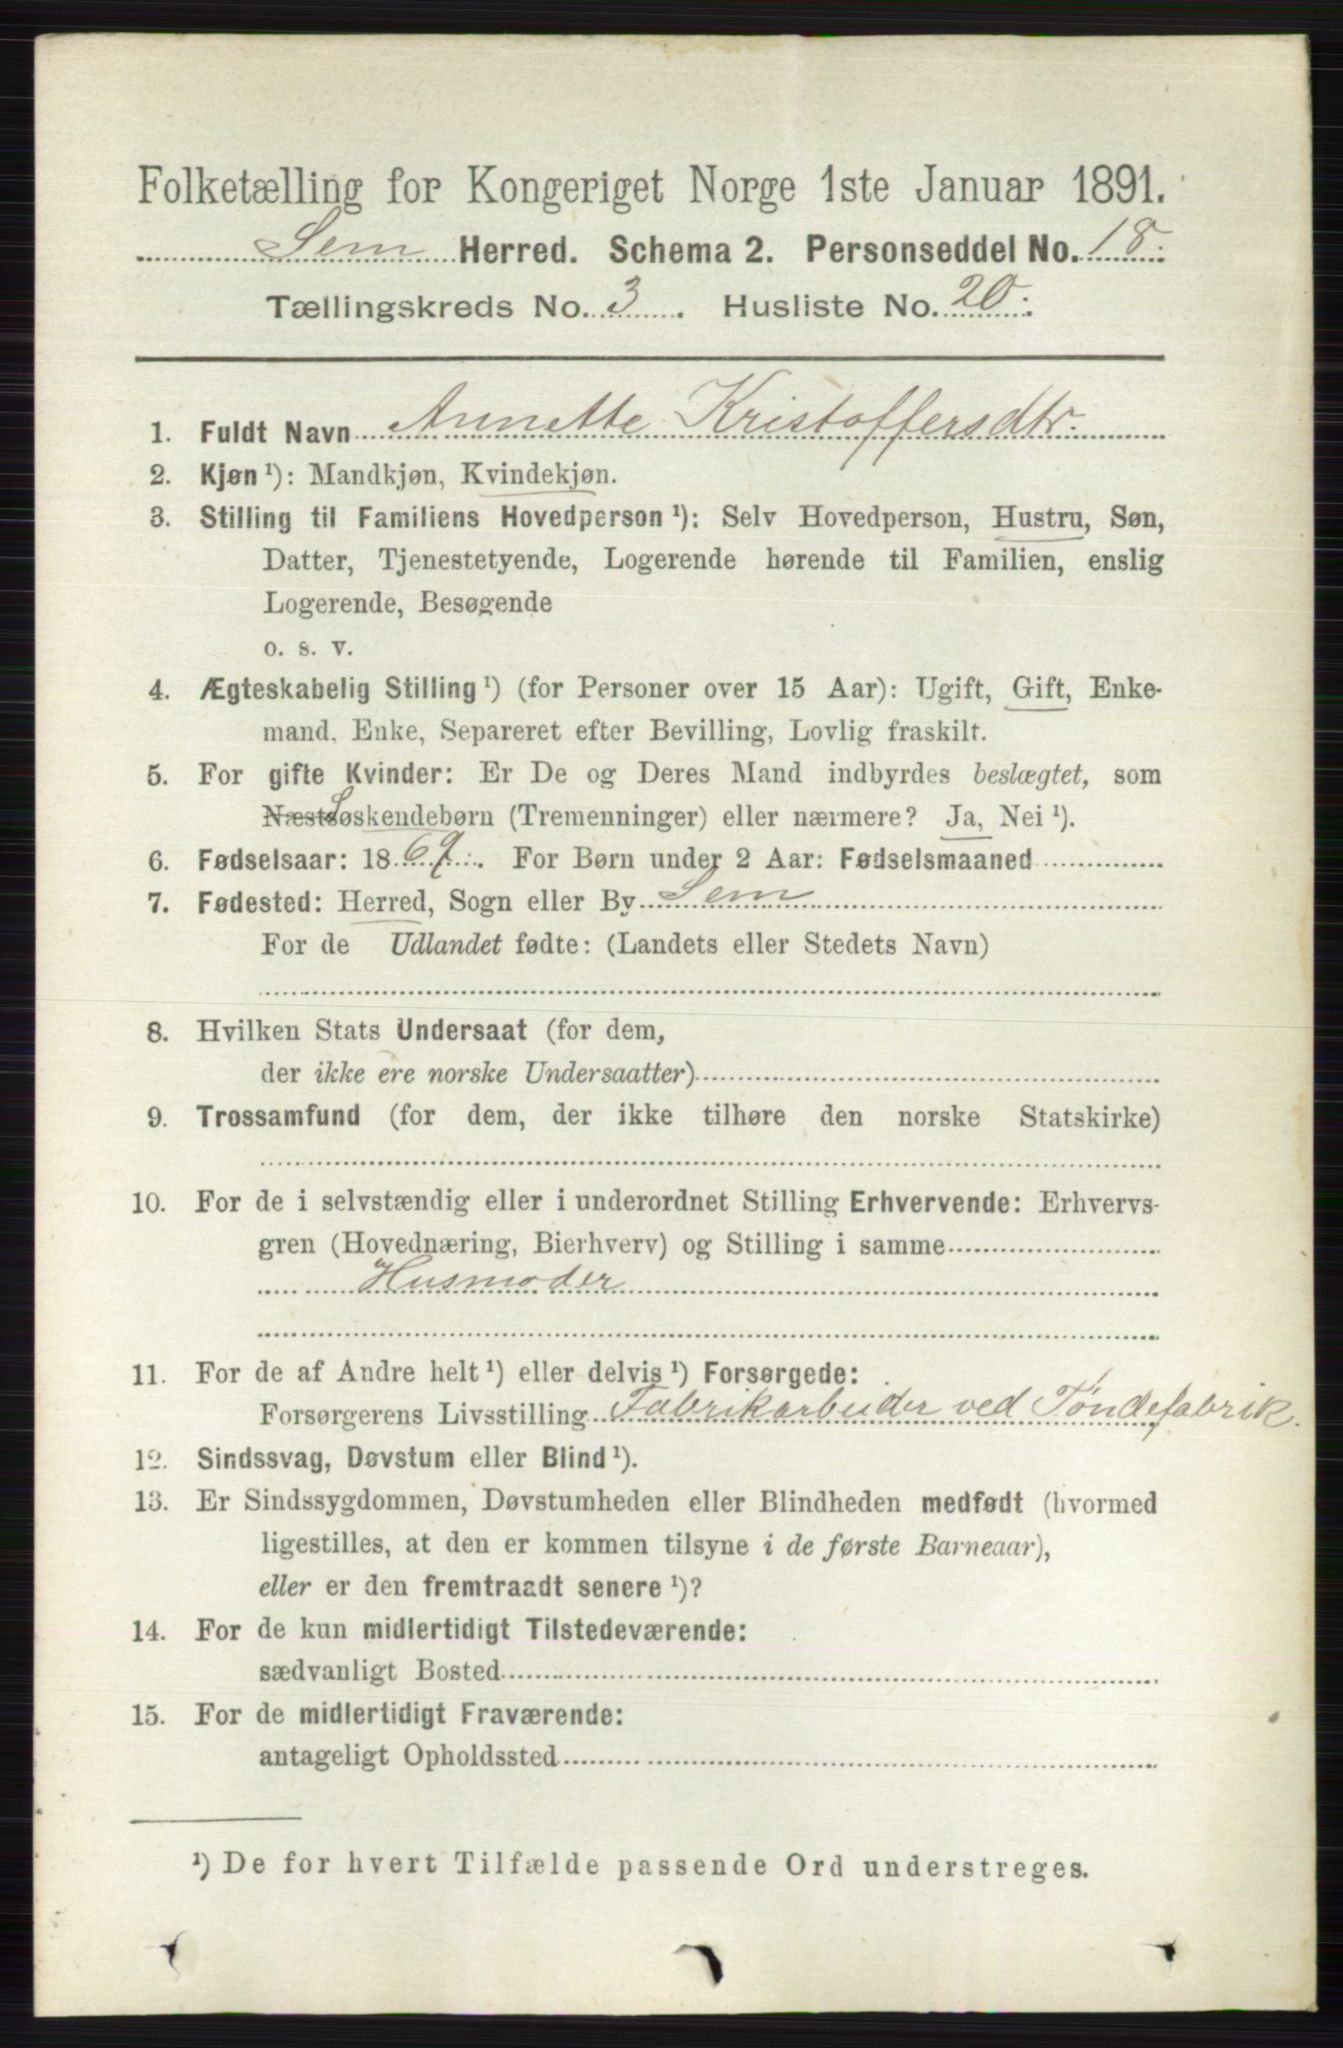 Folketælling for Kongeriget Norge 1ste Januar 1891.
Sem Herred. Schema 2. Personseddel No. 18.
Tællingskreds No. 3. Husliste No. 20.
1. Fuldt Navn Annette Kristoffersdtr.
2. Kjøn ¹): Mandkjøn, Kvindekjøn.
3. Stilling til Familiens Hovedperson ¹): Selv Hovedperson, Hustru, Søn,
Datter, Tjenestetyende, Logerende hørende til Familien, enslig
Logerende, Besøgende
o. s. v.
4. Ægteskabelig Stilling ¹) (for Personer over 15 Aar): Ugift, Gift, Enke-
mand, Enke, Separeret efter Bevilling, Lovlig fraskilt.
5. For gifte Kvinder: Er De og Deres Mand indbyrdes beslægtet, som
Næstsøskendebørn (Tremenninger) eller nærmere? Ja, Nei ¹).
6. Fødselsaar: 1869. For Børn under 2 Aar: Fødselsmaaned
7. Fødested: Herred, Sogn eller By Sem
For de Udlandet fødte: (Landets eller Stedets Navn)
8. Hvilken Stats Undersaat (for dem,
der ikke ere norske Undersaatter)
9. Trossamfund (for dem, der ikke tilhøre den norske Statskirke)
10. For de i selvstændig eller i underordnet Stilling Erhvervende: Erhvervs-
gren (Hovednæring, Bierhverv) og Stilling i samme
Husmoder
11. For de af Andre helt ¹) eller delvis ¹) Forsørgede:
Forsørgerens Livsstilling Fabrikarbeider ved Tøndefabrik.
12. Sindssvag, Døvstum eller Blind ¹).
13. Er Sindssygdommen, Døvstumheden eller Blindheden medfødt (hvormed
ligestilles, at den er kommen tilsyne i de første Barneaar),
eller er den fremtraadt senere ¹)?
14. For de kun midlertidigt Tilstedeværende:
sædvanligt Bosted
15. For de midlertidigt Fraværende:
antageligt Opholdssted
¹) De for hvert Tilfælde passende Ord understreges.